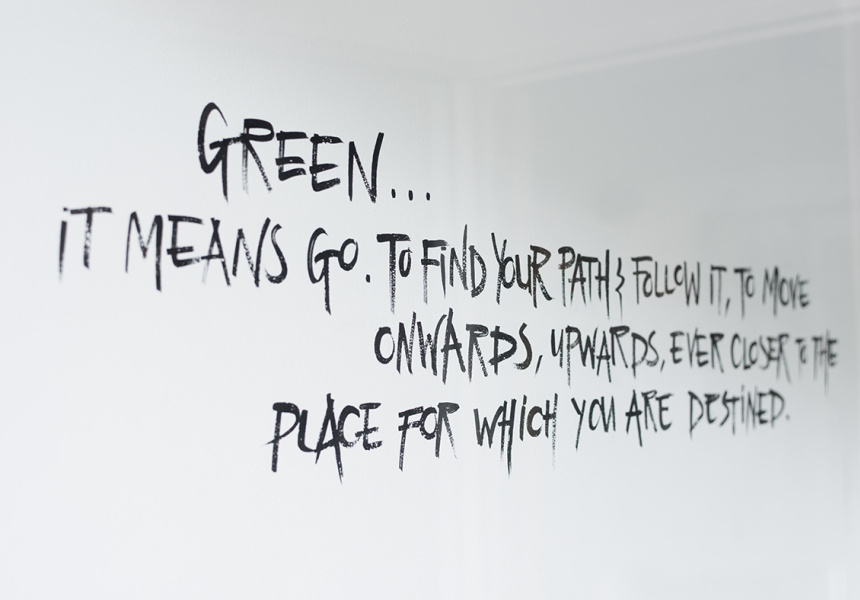 GREEN...
iT MEANS GO. TO FiND YOUR PATH & FOLLOW IT, TO MOVE
ONWARDS, UPWARDS, EVER CLOSER TO THE
PLACE FOR WHiCH YOU ARE DESTiNED.